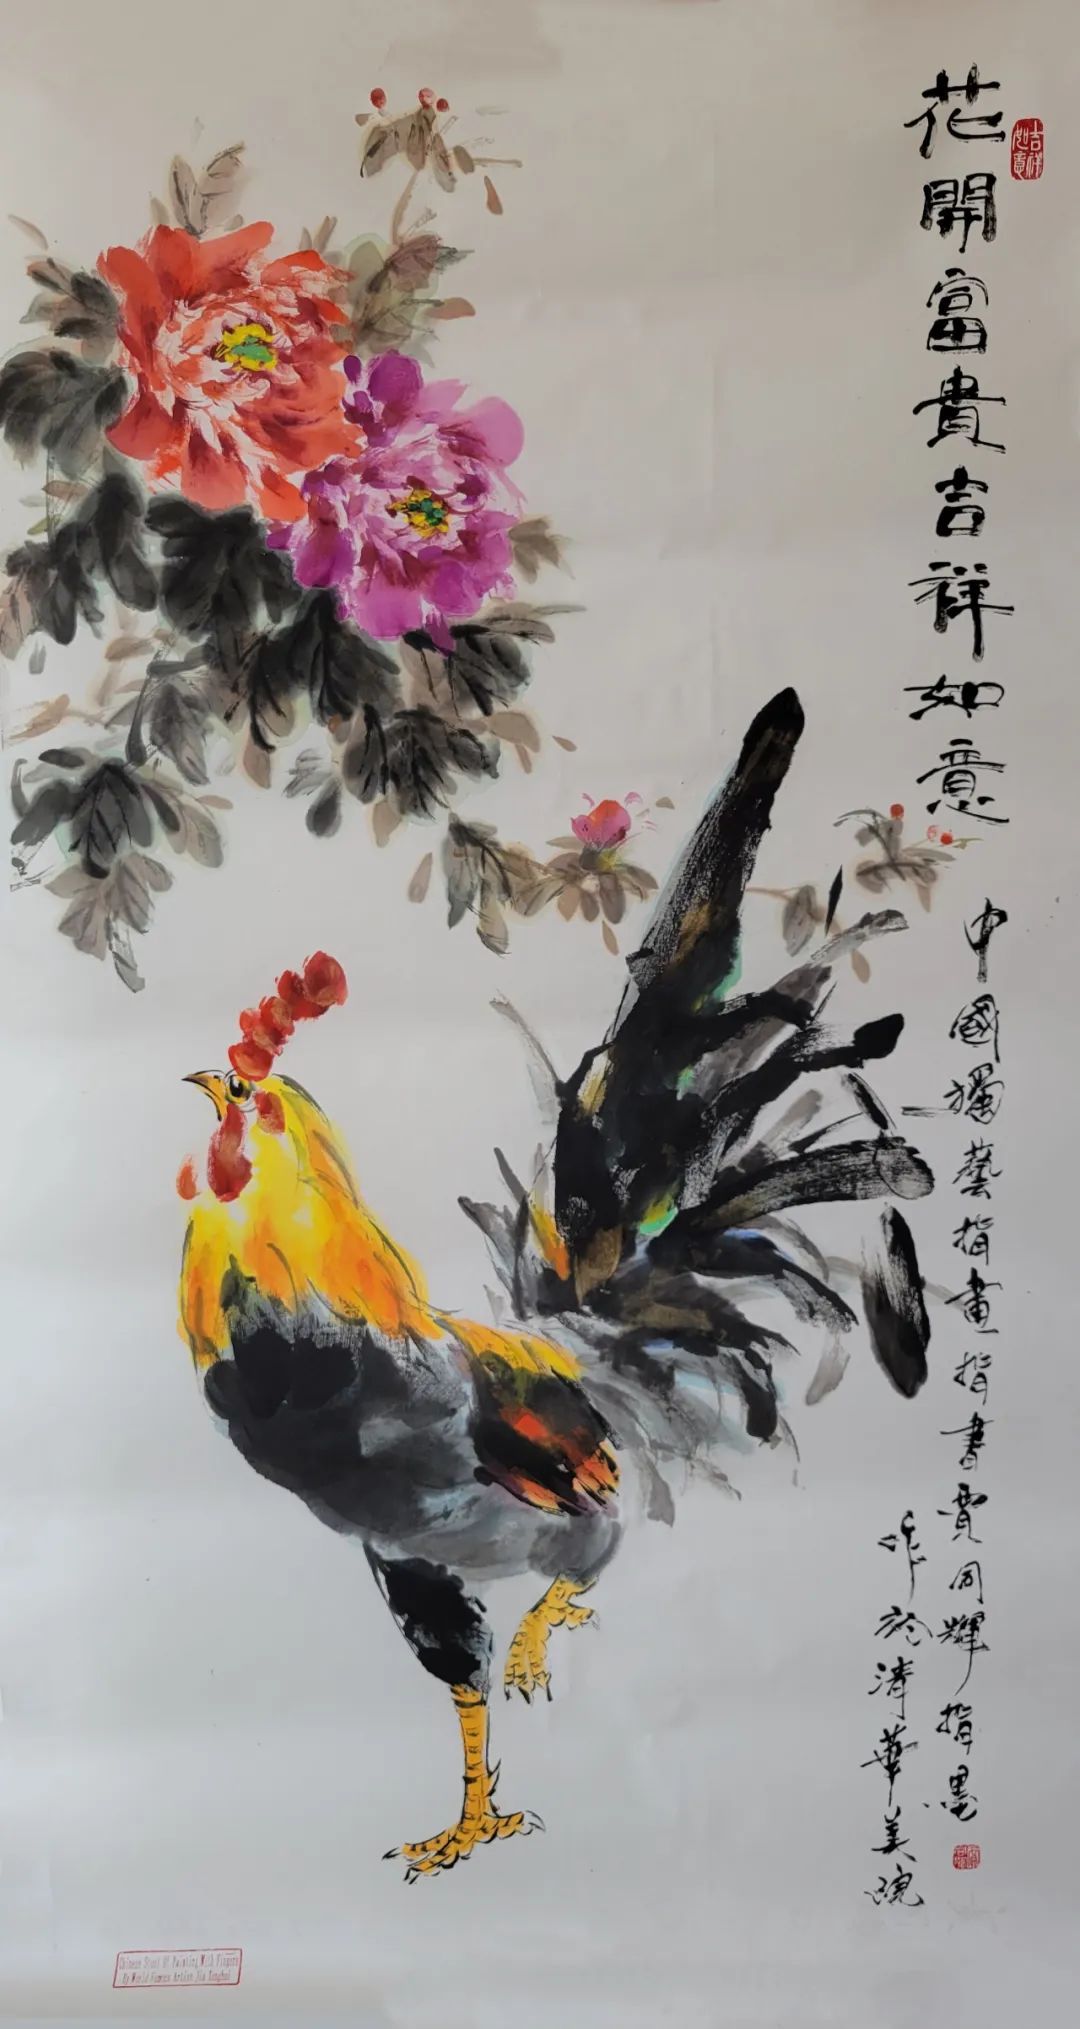 花開富貴吉祥如意
吉祥如意
中國獨藝指畫指書賈同輝指墨
作於清華美院
Chinese Stunt Of Painting With Fingers
By World Famous Artist Jia Tonghui